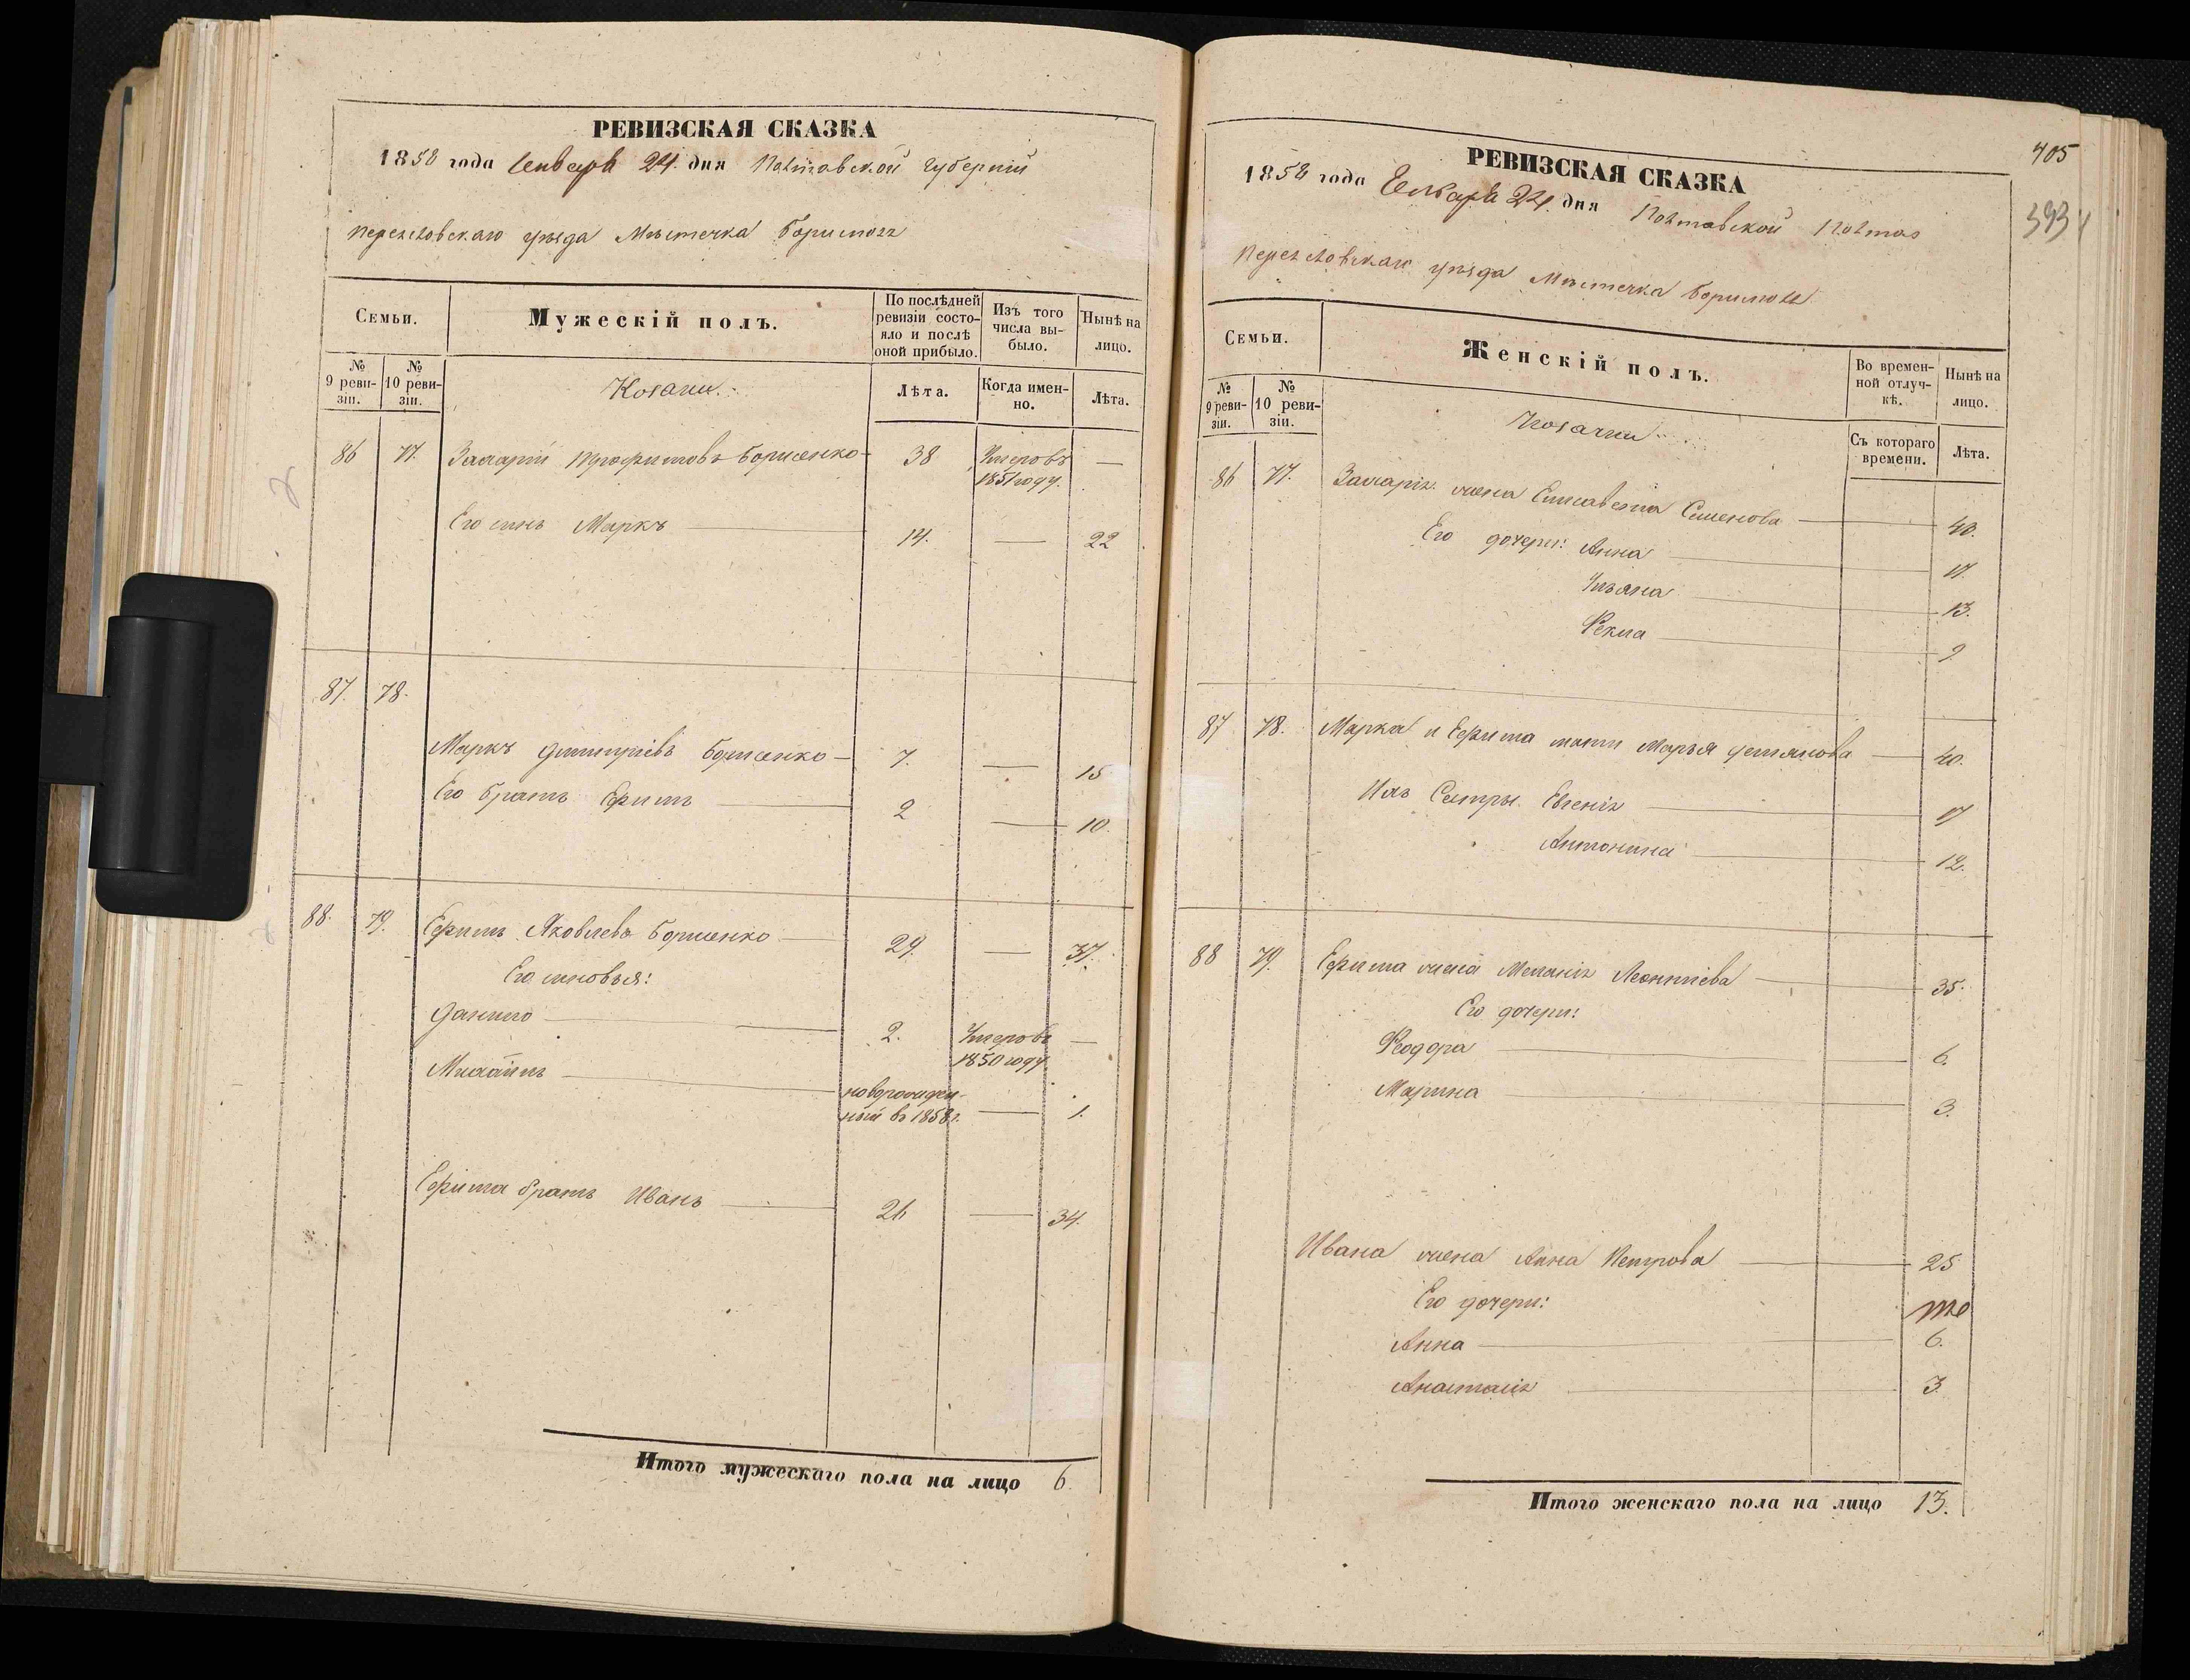 РЕВИЗСКАЯ СКАЗКА
1858 года Генваря 24. дня Полтавской Губерніи
переяславскаго уѣзда Мѣстечка Борисполя
Семьи.
Мужескій полъ.
По послѣдней ревизіи состояло и послѣ оной прибыло.
Изъ того числа выбыло.
Нынѣ на лицо.
№ 9 ревизіи.
№ 10 ревизіи.
Козаки.
Лѣта.
Когда именно.
Лѣта.
86 77. Захарій Трофимовъ Борисенко 38 Умеръ въ 1851 году. —
Его сынъ Маркъ 14. — 22
87. 78.
Маркъ Дмитріевъ Борисенко 7. — 15
Его братъ Ефимъ 2 — 10.
88. 79. Ефимъ Яковлевъ Борисенко 29. — 37.
Его сыновья:
Данило 2. Умеръ въ 1850 году —
Михаилъ новорожденный въ 1858г. — 1.
Ефима братъ Иванъ 26 — 34.
Итого мужескаго пола на лицо 6.
405
393
РЕВИЗСКАЯ СКАЗКА
1858 года Генваря 24. дня Полтавской
Переяславскаго уѣзда Мѣстечка Борисполя
Семьи.
Женскій полъ.
Во временной отлучкѣ.
Нынѣ на лицо.
№ 9 ревизіи.
№ 10 ревизіи.
Козачки
Съ котораго времени.
Лѣта.
86 77. Захарія жена Елисавета Семенова 40.
Его дочери: Анна 17.
Ульяна 13.
Фекла 9.
87 78. Марка и Ефима мать Марья Демянова 40.
Ихъ Сестры Евгенія 17
Антонина 12.
88 79. Ефима жена Меланія Леонтіева 35.
Его дочери:
Феодора 6.
Марина 3.
Ивана жена Анна Петрова 25
Его дочери:
Анна 6.
Анастасія 3
Итого женскаго пола на лицо 13.